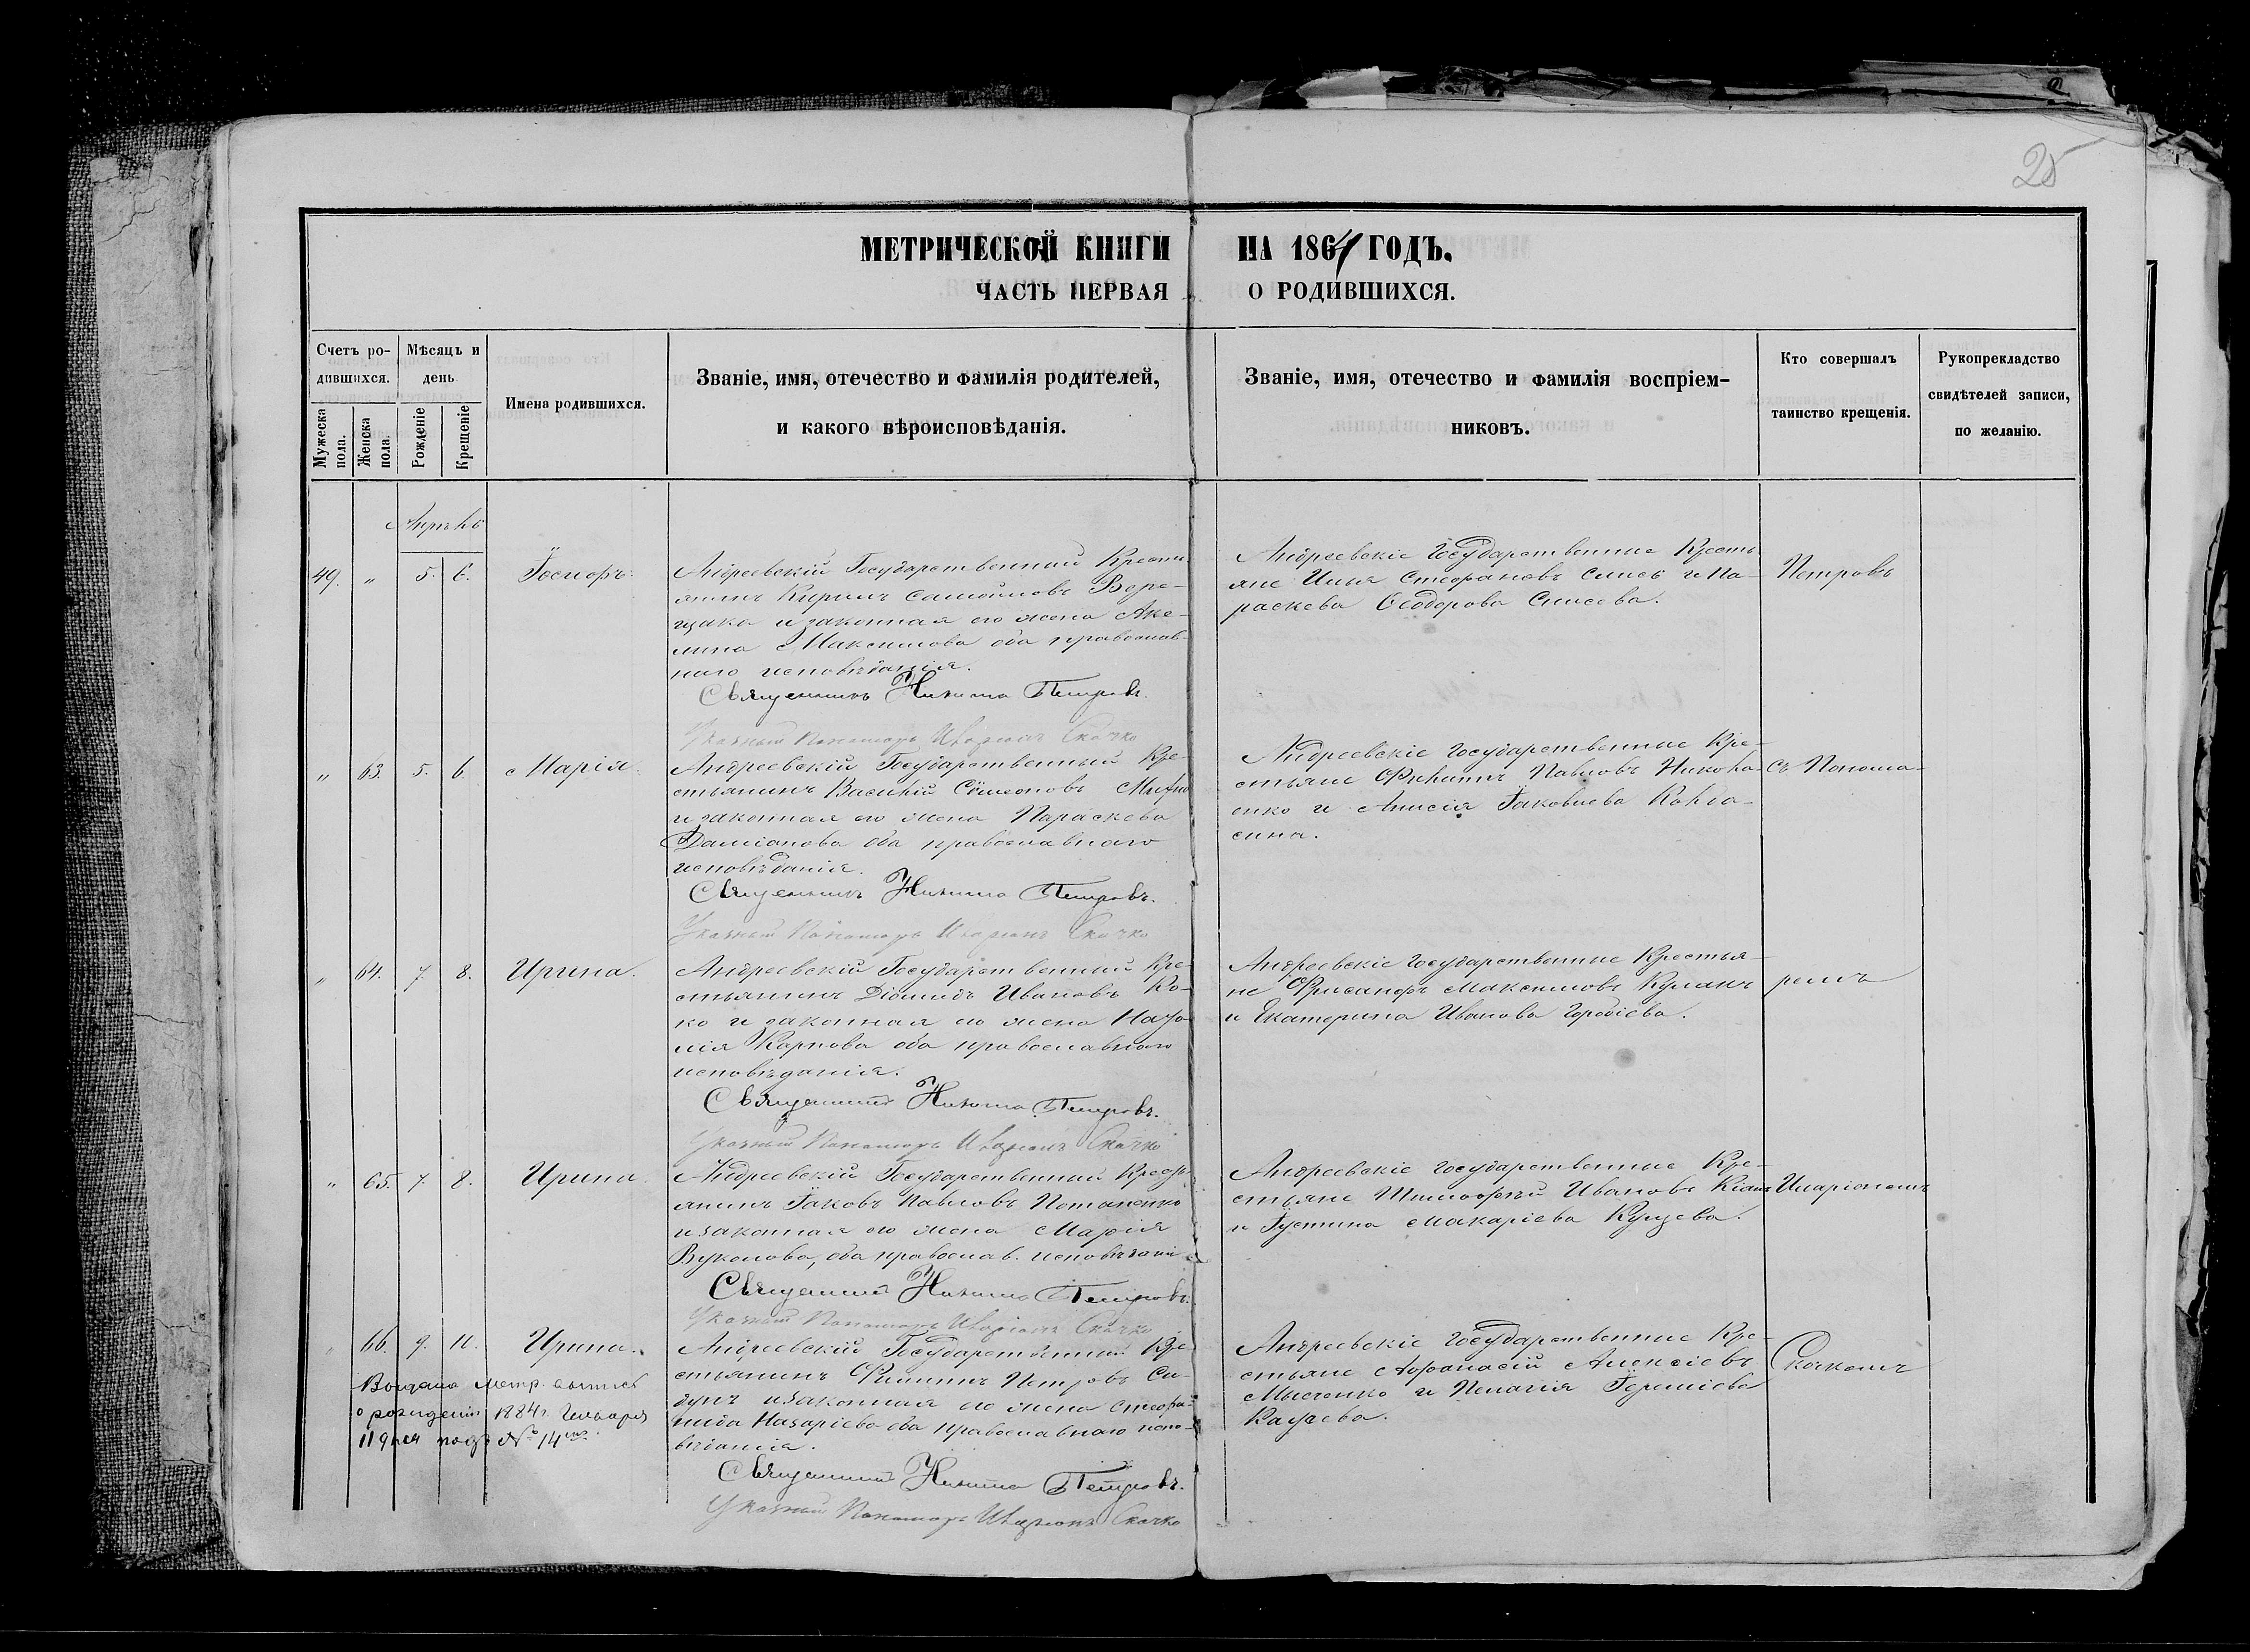 25
МЕТРИЧЕСКОЙ КНИГИ НА 1864 ГОДЪ.
ЧАСТЬ ПЕРВАЯ О РОДИВШИХСЯ.
Счетъ ро-
дившихся.
Мужеска пола.
Женска пола.
Мѣсяцъ и
день.
Рожденіе
Крещеніе
Имена родившихся.
Званіе, имя, отечество и фамилія родителей,
и какого вѣроисповѣданія.
Званіе, имя, отечество и фамилія воспріем-
никовъ.
Кто совершалъ
таинство крещенія.
Рукоприкладство
свидѣтелей записи,
по желанію.
Апрѣль
49. " 5. 6. Іосифъ.
Андреевскій Государственный Кресть
янинъ Кирилъ Самойловъ
и законная его жена Аке-
лина Максимова оба православ-
наго исповѣданія.
Священникъ Никита Петровъ.
Указный Пономарь Иларіонъ Скачко
Андреевскіе Государственные Кресть
яне Илья Стефановъ и Па-
раскева Ѳеодорова
Петровъ
" 63. 5. 6. Марія.
Андреевскій Государственный Кре
стьянинъ Василій Сѵмеоновъ
и законная его жена Параскева
Даміанова оба православнаго
исповѣданія.
Священникъ Никита Петровъ.
Указный Пономарь Иларіонъ Скачко
Андреевскіе Государственные Кре-
стьяне Филипъ Павловъ Никола-
енко и Анисія Іаковлева
съ Понома-
" 64. 7. 8. Ирина.
Андреевскій Государственный Кре-
стьянинъ Діомидъ Ивановъ Ко-
ко и законная его жена Ната
лія Карпова оба православнаго
исповѣданія.
Священникъ Никита Петровъ.
Указный Пономарь Иларіонъ Скачко
Андреевскіе Государственные Крестья-
не Максимовъ
и Екатерина Иванова
ремъ
" 65. 7. 8. Ирина
Андреевскій Государственный Кресть
янинъ Іаковъ Павловъ Потапенко
и законная его жена Марія
Вуколова, оба православ. исповѣдані
Священникъ Никита Петровъ.
Указный Пономарь Иларіонъ Скачко
Андреевскіе Государственные Кре-
стьяне Тимоѳей Ивановъ
и Іустина Макаріева
Иларіономъ
" 66. 9. 10. Ирина.
Выдана метр. выпись
о рожденіи 1884 г. Генваря
11 дня подъ № 14
Андреевскій Государственный Кре
стьянинъ Филипъ Петровъ Си-
и законная его жена Стефа
нида Назаріева оба православнаго испо-
вѣданія.
Священникъ Никита Петровъ.
Указный Пономарь Иларіонъ Скачко
Андреевскіе Государственные Кре-
стьяне Аѳанасій Алексіевъ
и Пелагія Іереміева
Скачкомъ